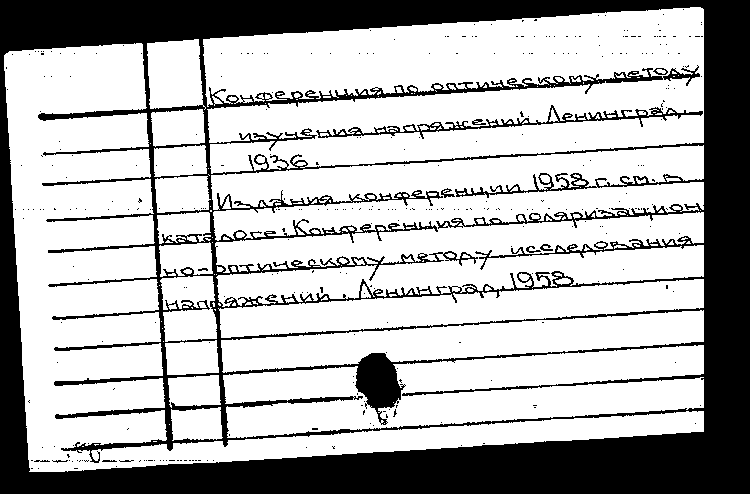 Конференция по оптическому методу
изучения напряжений. Ленинград,
1936.
Издания конференции 1958 г. см. в
каталоге: Конференция по поляризацион
но-оптическому методу исследования
напряжений. Ленинград, 1958